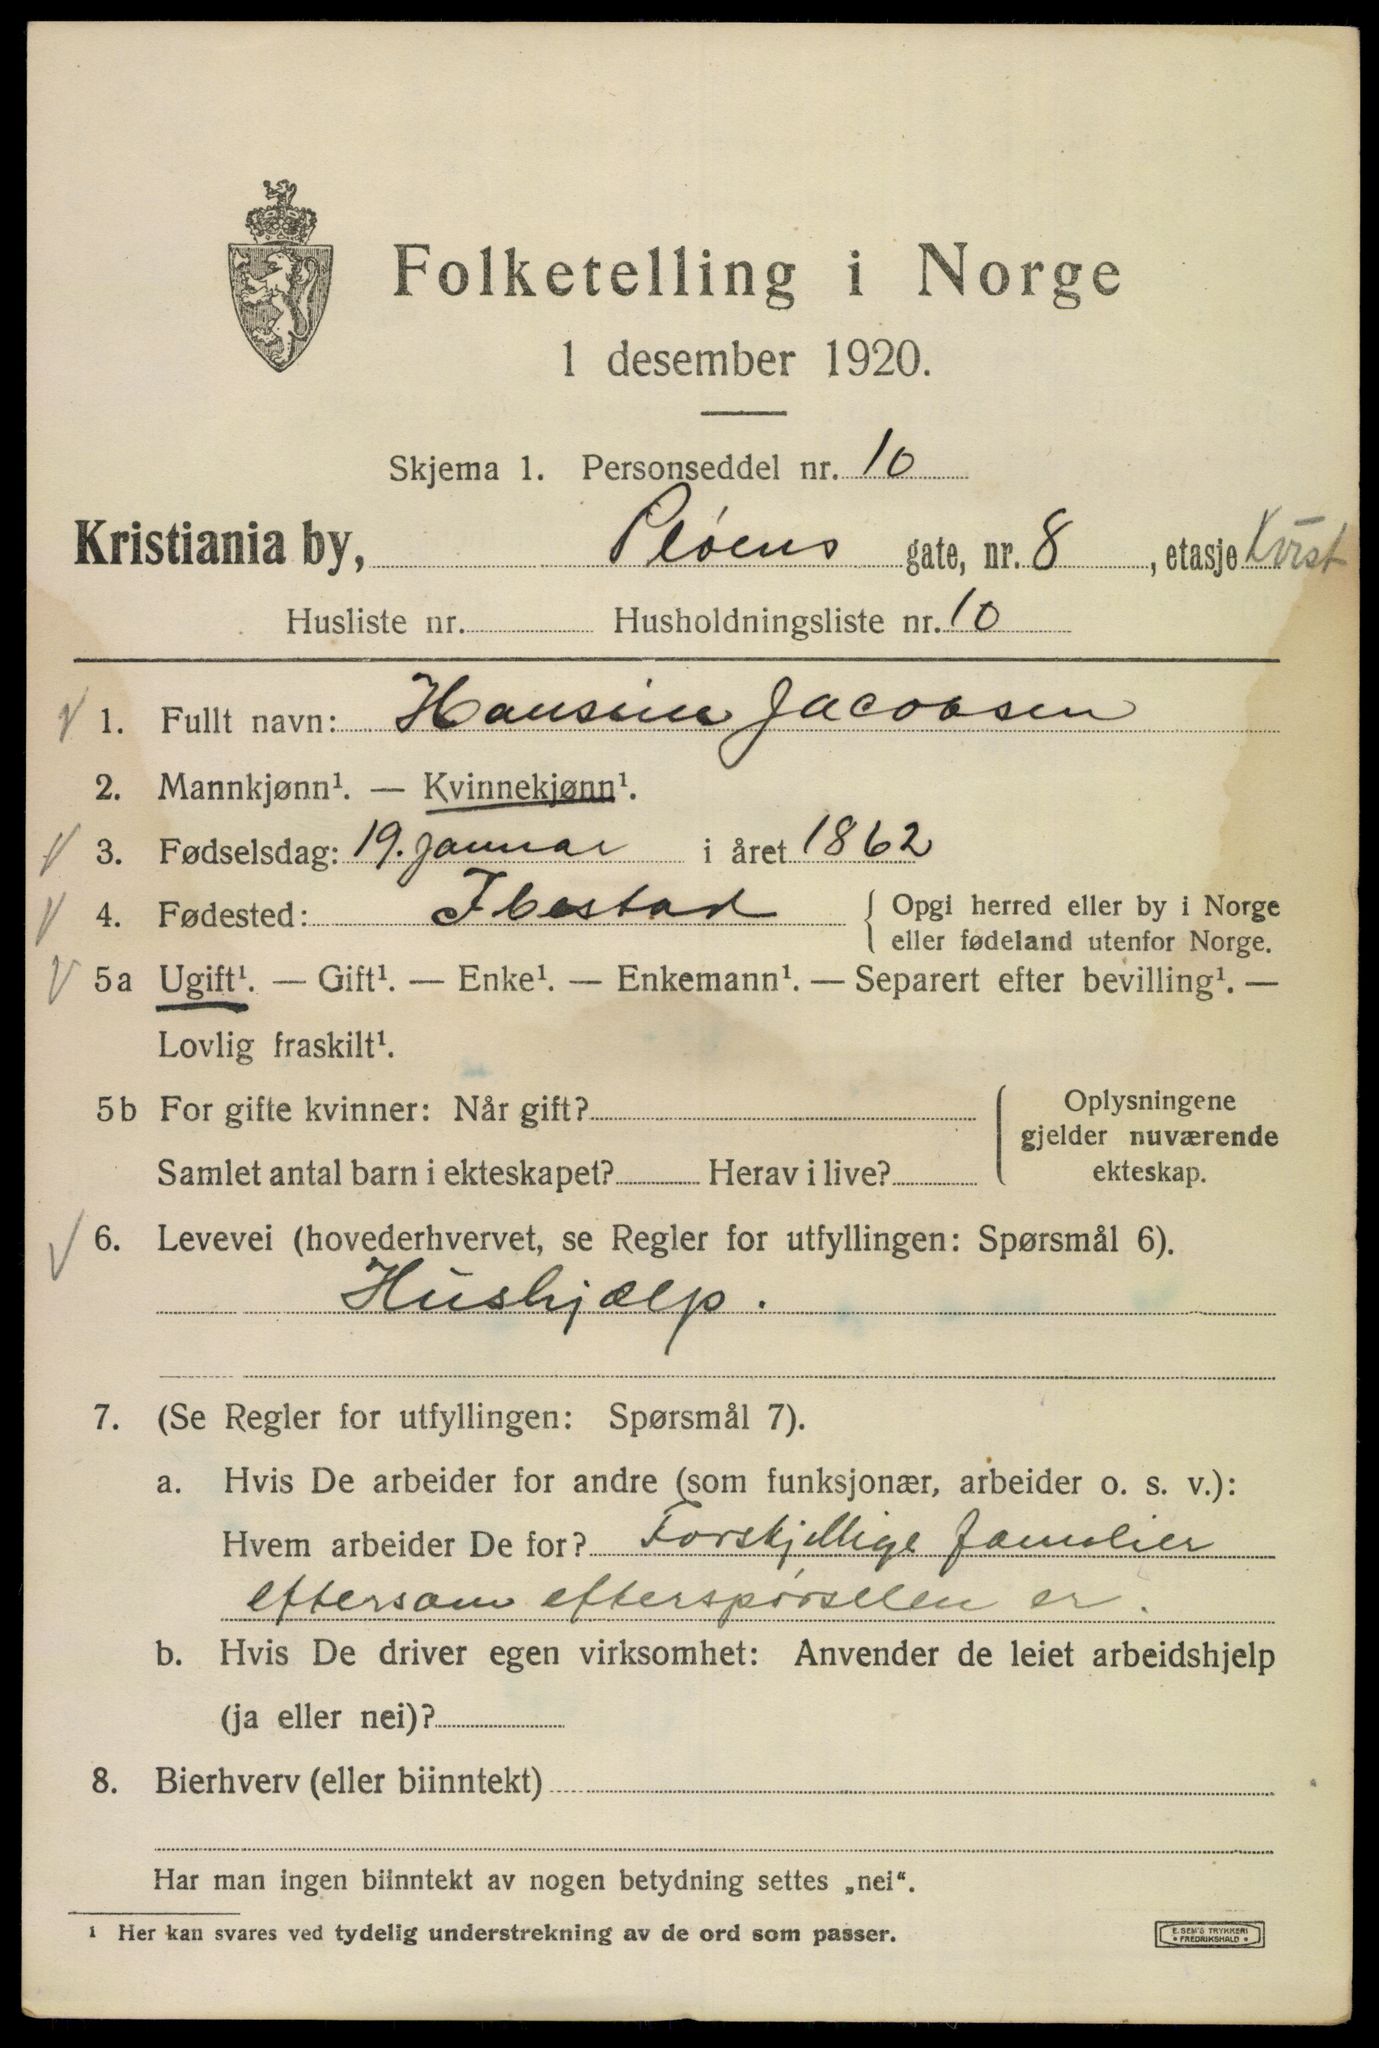 Folketelling i Norge
1 desember 1920.
Skjema 1. Personseddel nr. 10
Kristiania by, Pløens gate, nr. 8, etasje Kvist
Husliste nr. Husholdningsliste nr. 10
1. Fullt navn: Hansine Jacobsen
2. Mannkjønn¹. — Kvinnekjønn¹.
3. Fødselsdag: 19. januar i året 1862
4. Fødested: Ibestad { Opgi herred eller by i Norge
eller fødeland utenfor Norge.
5a Ugift¹. — Gift¹. — Enke¹. — Enkemann¹. — Separert efter bevilling¹. —
Lovlig fraskilt¹.
5b For gifte kvinner: Når gift?
Samlet antal barn i ekteskapet? Herav i live?
Oplysningene
gjelder nuværende
ekteskap.
6. Levevei (hovederhvervet, se Regler for utfyllingen: Spørsmål 6).
Hushjælp.
7. (Se Regler for utfyllingen: Spørsmål 7).
a. Hvis De arbeider for andre (som funksjonær, arbeider o. s. v.):
Hvem arbeider De for? Forskjellige familier
eftersom efterspørselen er.
b. Hvis De driver egen virksomhet: Anvender de leiet arbeidshjelp
(ja eller nei)?
8. Bierhverv (eller biinntekt)
Har man ingen biinntekt av nogen betydning settes „nei“.
¹ Her kan svares ved tydelig understrekning av de ord som passer.
E. SEM'S TRYKKERI
• FREDRIKSHALD •